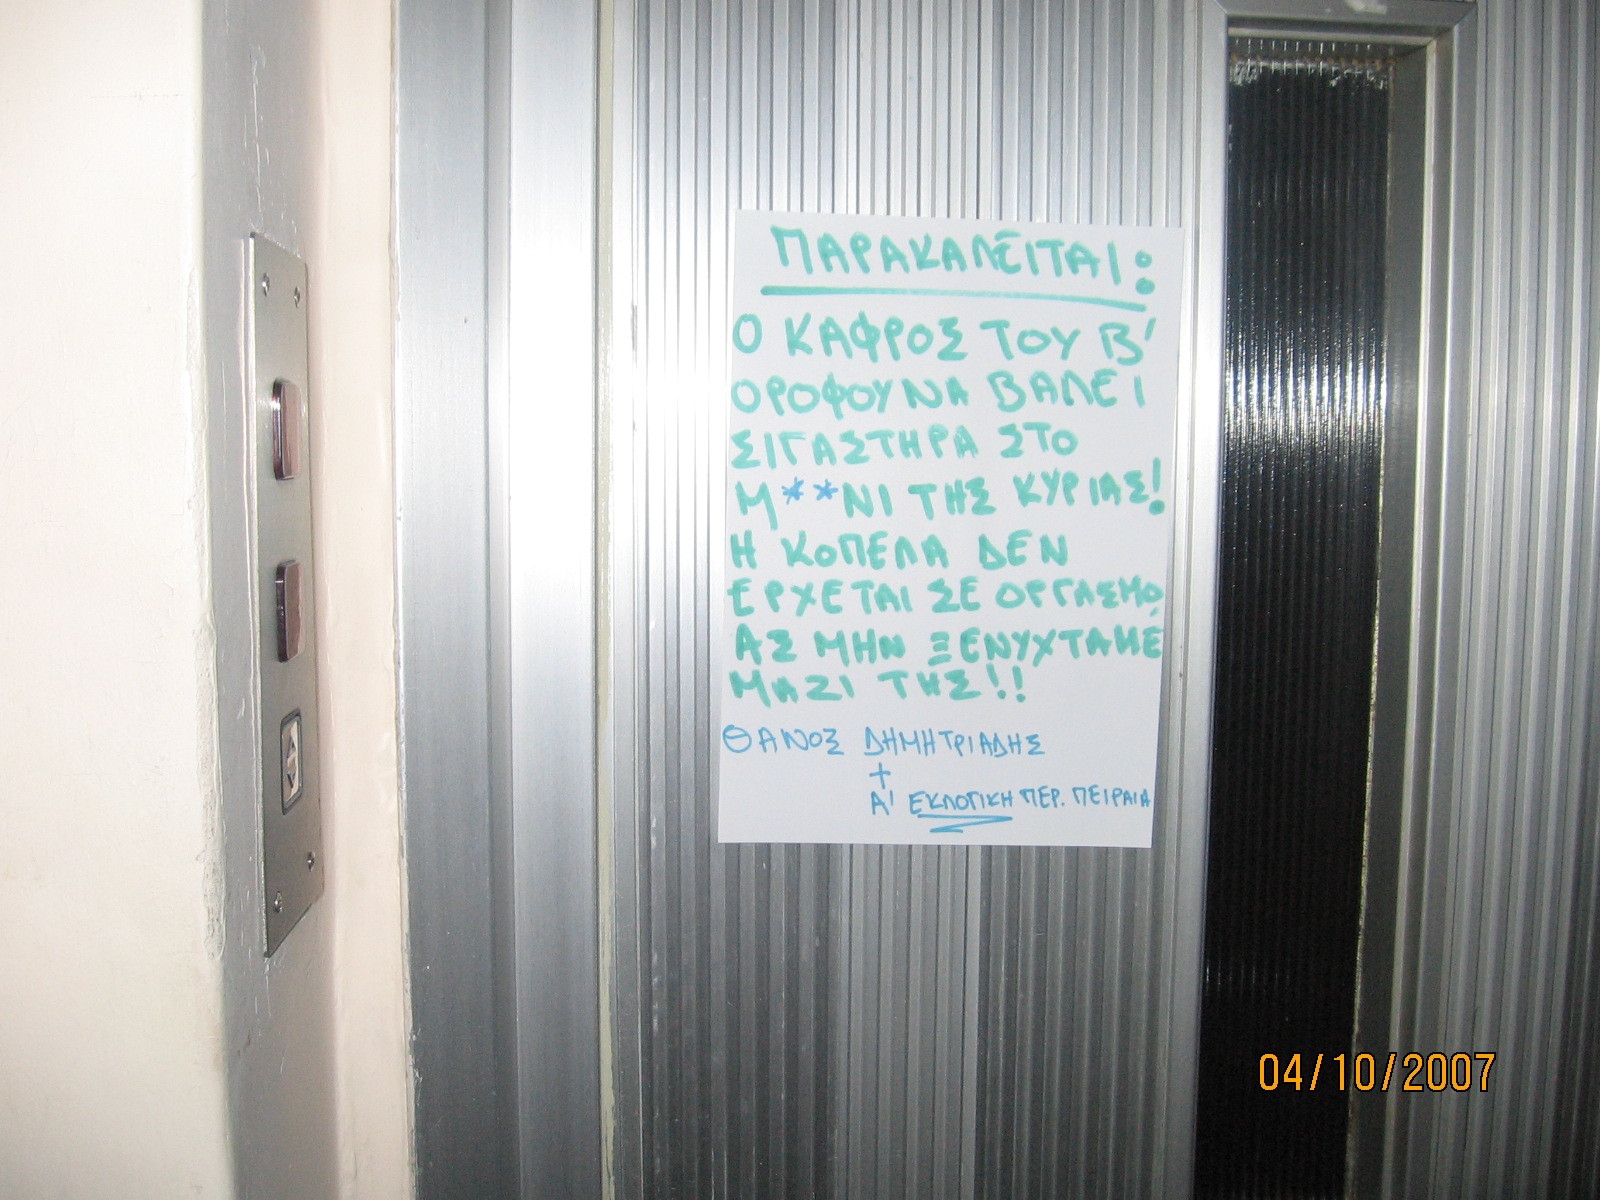 ΠΑΡΑΚΑΛΕΙΤΑΙ:
Ο ΚΑΦΡΟΣ ΤΟΥ Β'
ΟΡΟΦΟΥ ΝΑ ΒΑΛΕΙ
ΣΙΓΑΣΤΗΡΑ ΣΤΟ
Μ**ΝΙ ΤΗΣ ΚΥΡΙΑΣ!
Η ΚΟΠΕΛΑ ΔΕΝ
ΕΡΧΕΤΑΙ ΣΕ ΟΡΓΑΣΜΟ,
ΑΣ ΜΗΝ ΞΕΝΥΧΤΑΜΕ
ΜΑΖΙ ΤΗΣ!!
ΘΑΝΟΣ ΔΗΜΗΤΡΙΑΔΗΣ
+
Α' ΕΚΛΟΓΙΚΗ ΠΕΡ. ΠΕΙΡΑΙΑ
04/10/2007